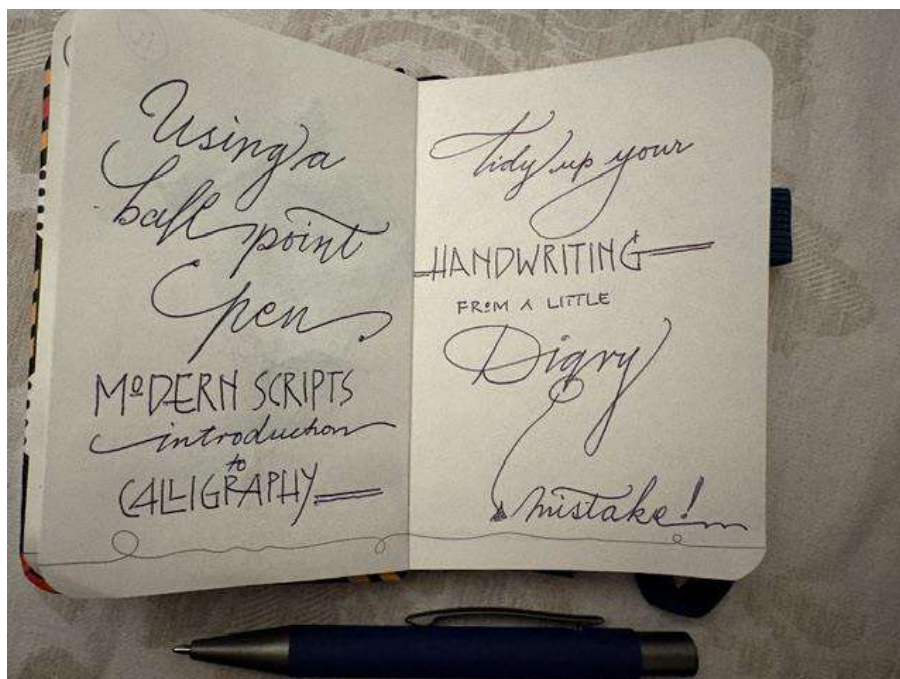 Using a
ball point
pen
MODERN SCRIPTS
introduction
to
CALLIGRAPHY
Tidy up your
HANDWRITING
FROM A LITTLE
Digry
mistake!